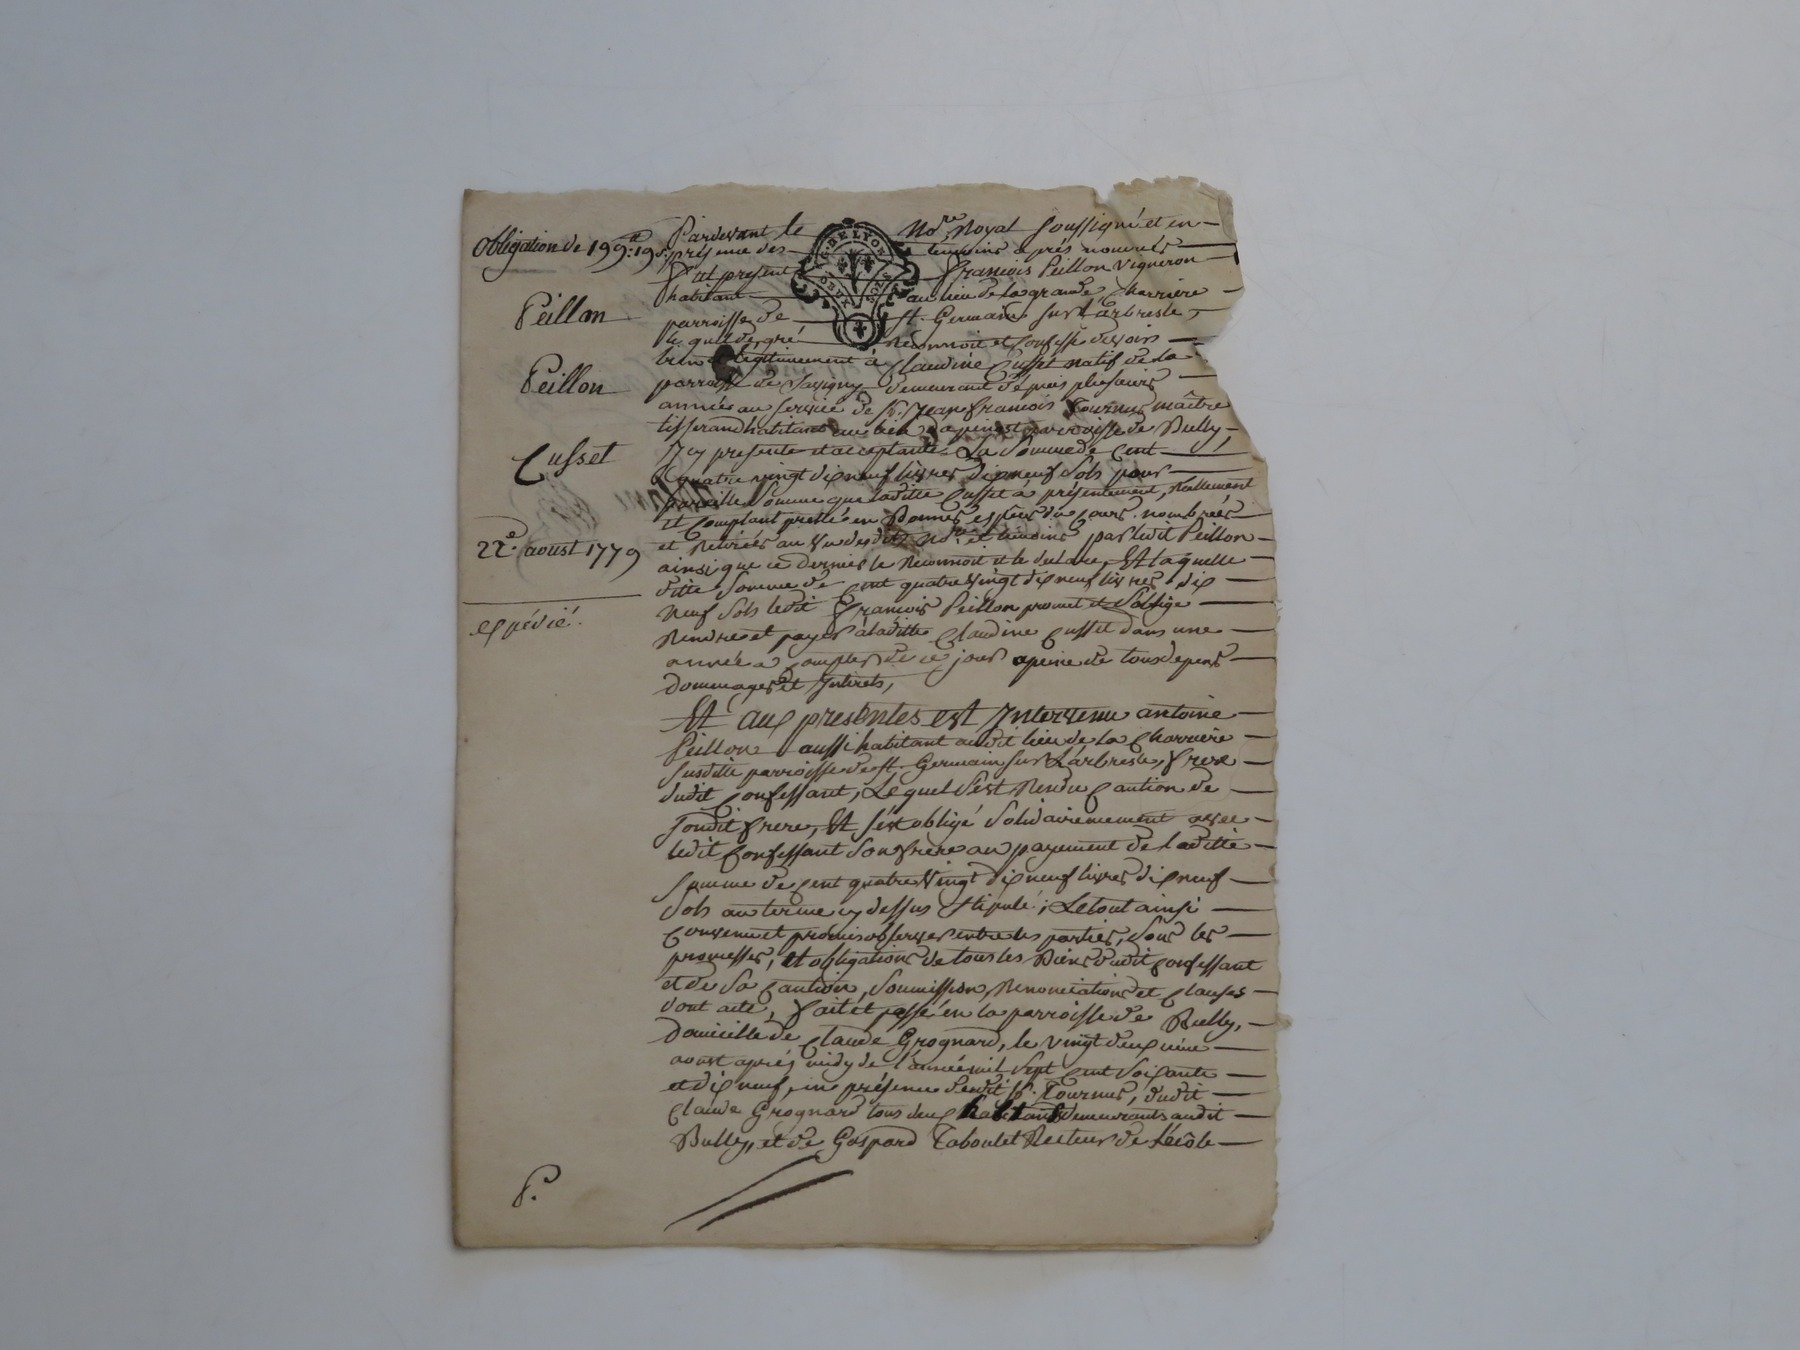 Obligation de 199.tt 19 s.
Peillon
Peillon
Cusset
22.e aoust 1779
expédié.
G. DE LYON
DEUX SOLS
Pardevant le No.re Royal soussigné et en
présence des temoins après nommés
Fut présent François Peillon vigneron
habitant au lieu de la grande Charriere
parroisse de st. Germain sur L'arbresle,
lequel de gré reconnoit et confesse devoir
bien et légitimement à Claudine Cusset natif de la
parroisse de Savigny demeurant dépuis plusieurs
années au service de Sr. Jean François Tournus maître
tisserand habitant au lieu parroisse de Bully,
Icy presente et acceptante La Somme de Cent
quatre vingt dix neuf livres dix neuf sols pour
pareille somme que laditte Cusset à présentement, réellement
et comptant pretté en bonnes espèces du cours. nombrées
et retirées au vu desdits No.re et témoins par ledit Peillon
ainsi que ce dernier le reconnoit et le declare, Et laquelle
ditte Somme de cent quatre vingt dix neuf livres dix
neuf sols ledit François Peillon promet et s'oblige
Rendre et payer à laditte Claudine Cusset dans une
année a compter de ce jour a peine de tous depens
dommages et Interets,
Et aux presentes est Intervenu antoine
Peillon aussi habitant audit lieu de la Charriere
susditte parroisse de st. Germain sur L'arbresle, frere
dudit confessant, Lequel s'est Rendu Caution de
sondit frere, Et s'est obligé solidairemement avec
ledit Confessant son frere au payement de laditte
somme de Cent quatre Vingt dix neuf livres dix neuf
sols au terme cy dessus stipulé; Le tout ainsi
Convenu et promis observer entre les parties, sous les
promesses, et obligations de tous les Biens dudit confessant
et de sa Caution, soumission, Renonciations et Clauses
dont acte, fait et passé en la parroisse de Bully,
Domicille de Claude Grognard, le vingt deuxième
aoust après midy de l'année mil sept cent soixante
et dix neuf, en présence dudit Sr. Tournus, dudit
Claude Grognard tous deux habitants demeurants audit
Bully, et de Gaspard Taboulet Recteur de L'école
P.